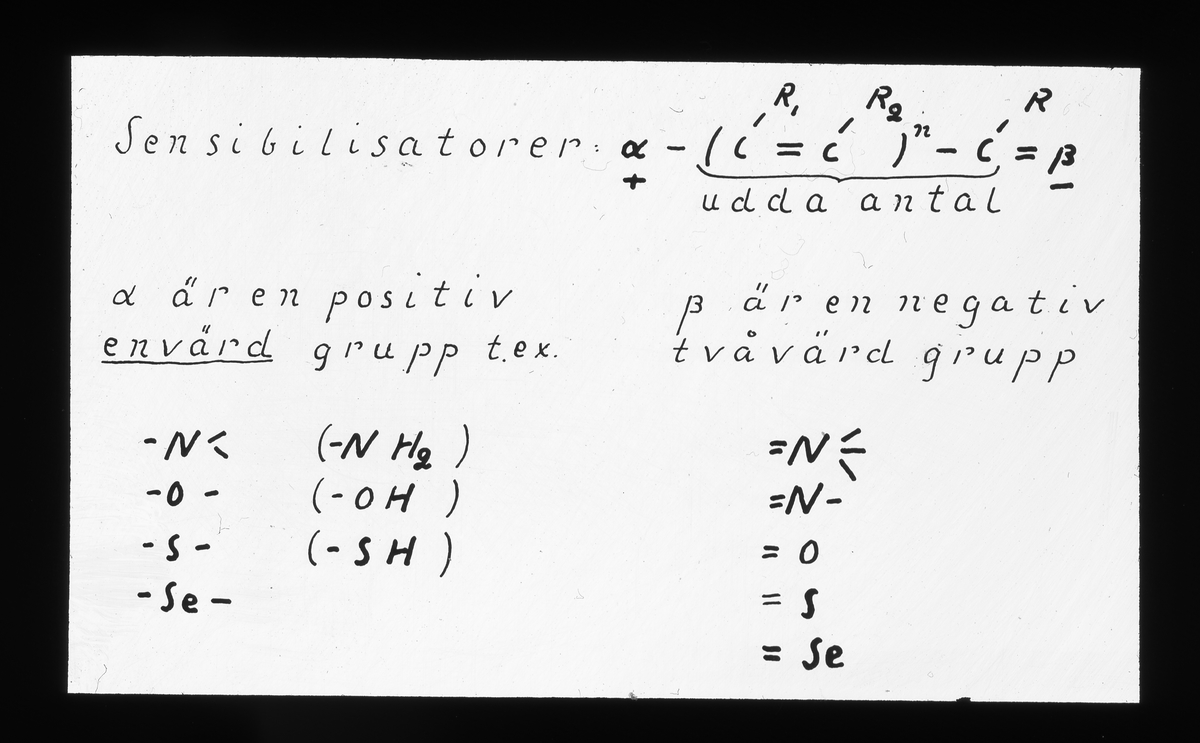 R₁ R₂ R
Sensibilisatorer: α - (C = C)ⁿ - C = β
+ -
udda antal
α är en positiv
envärd grupp t.ex.
β är en negativ
tvåvärd grupp
-N< (-NH₂)
-O- (-OH)
-S- (-SH)
-Se-
=N⋲
=N-
=O
=S
=Se